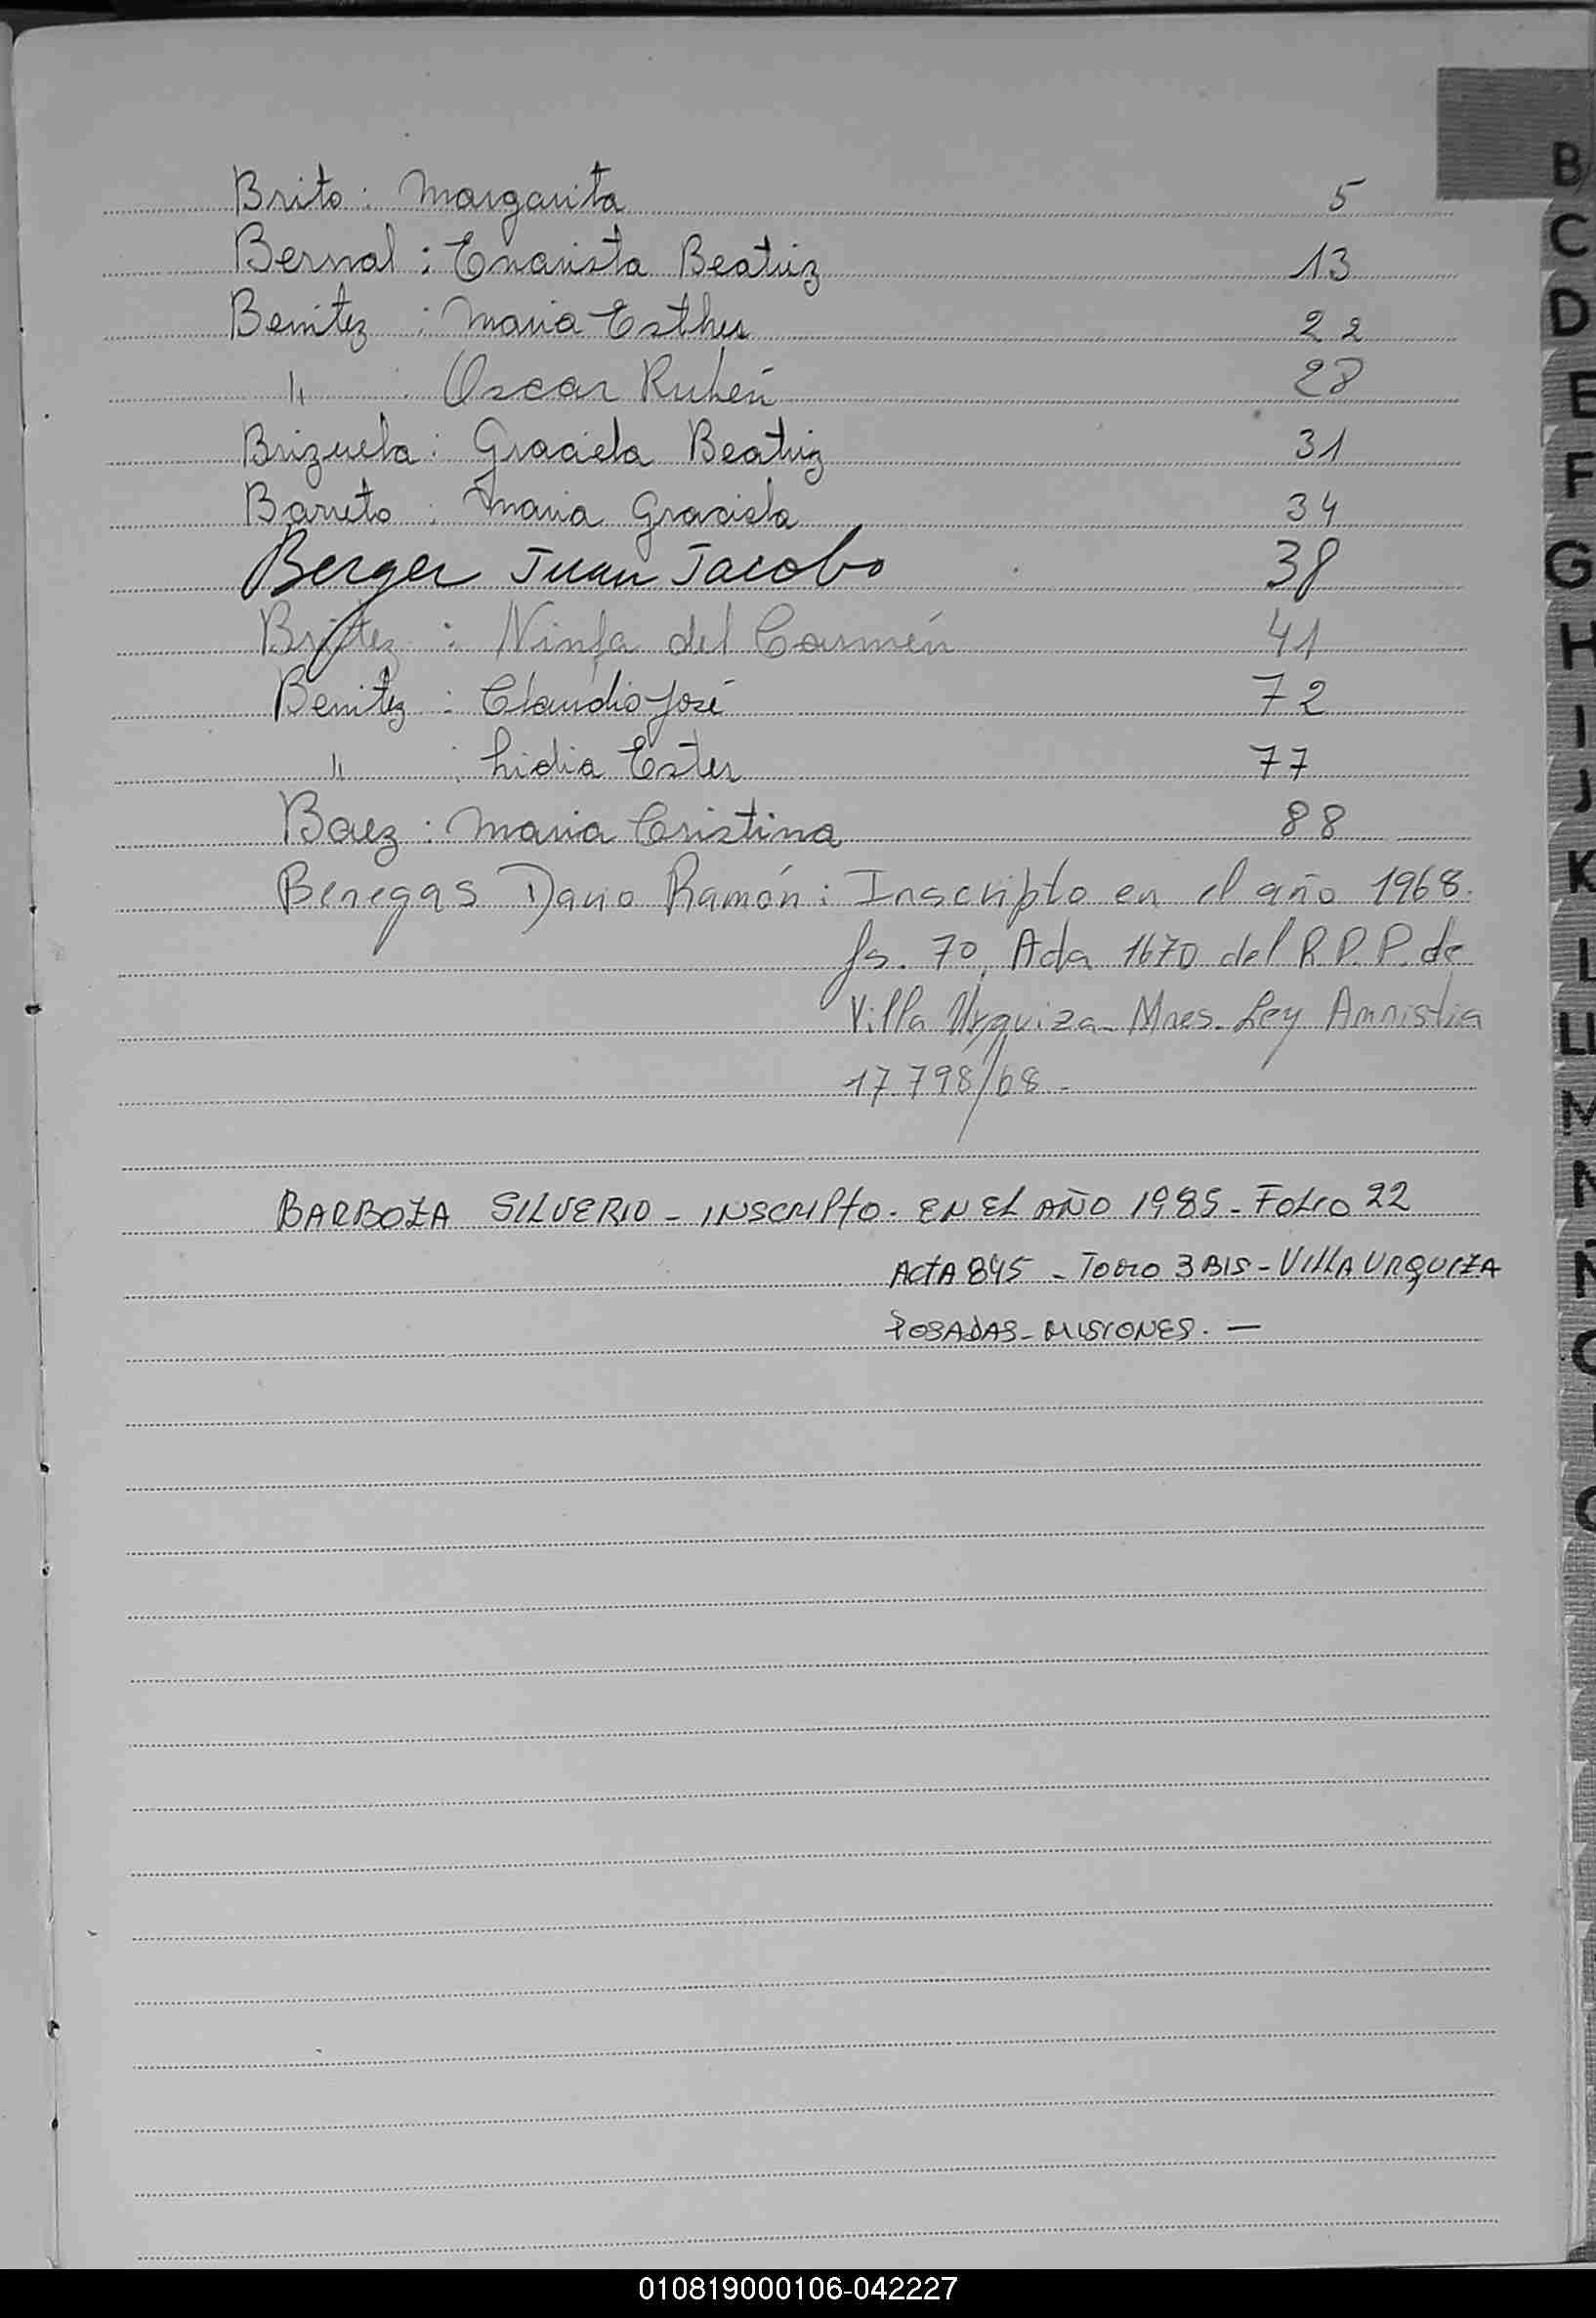 Brito : Margarita 5
Bernal : Evarista Beatriz 13
Benitez : Maria Esther 22
" : Oscar Rubén 28
Brizuela : Graciela Beatriz 31
Barreto : Maria Graciela 34
Berger Juan Jacobo 38
Britez : Ninfa del Carmén 41
Benitez : Claudio José 72
" : Lidia Ester 77
Baez : Maria Cristina 88
Benegas Dario Ramón : Inscripto en el año 1968.
fs. 70, Acta 1670 del R.P.P. de
Villa Urquiza - Mnes. Ley Amnistia
17.798/68 -
BARBOZA SILVERIO - INSCRIPTO - EN EL AÑO 1985 - FOLIO 22
ACTA 845 - TOMO 3 BIS - VILLA URQUIZA
POSADAS - MISIONES. —
B
C
D
E
F
G
H
I
J
K
L
LL
M
N
Ñ
O
010819000106-042227